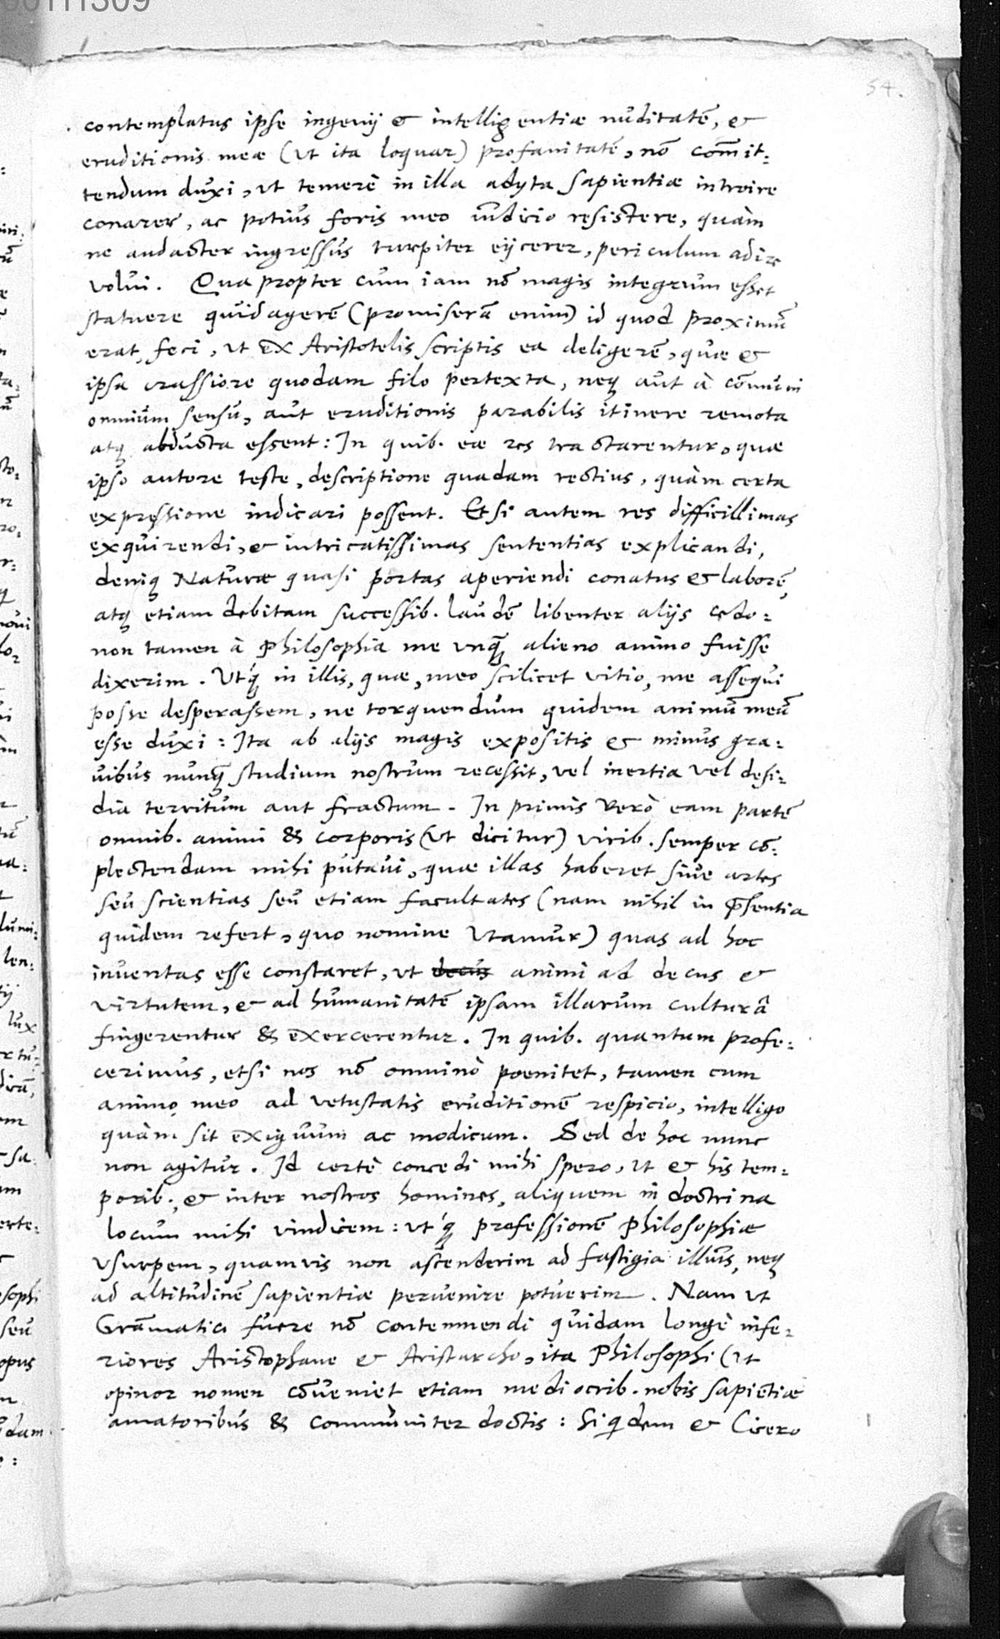 54.
contemplatus ipse ingenij & intelligentiæ nuditatē, &
eruditionis meæ (ut ita loquar) profanitatē, nō com̄it-
tendum duxi, ut temerè in illa adyta sapientiæ introire
conarer, ac potius foris meo iudicio resistere, quàm
ne audacter ingressus turpiter eijcerer, periculum adire
volui. Quapropter cum iam nō magis integrum esset
statuere quid agerē (promiserā enim) id quod proximū
erat, feci, ut ex Aristotelis scriptis ea deligerē, quæ &
ipsa crassiore quodam filo pertexta, neq; aut à cōmuni
omnium sensu, aut eruditionis parabilis itinere remota
atq; abducta essent: In quib. eæ res tractarentur, quæ
ipso autore teste, descriptione quadam rectius, quàm certa
expressione indicari possent. Etsi autem res difficillimas
exquirendi, & intricatissimas sententias explicandi,
deniq; Naturæ quasi portas aperiendi conatus & laborē,
atq; etiam debitam successib. laudē libenter alijs cedo:
non tamen à Philosophia me unquā alieno animo fuisse
dixerim. Utq́; in illis, quæ, meo scilicet vitio, me assequi
posse desperassem, ne torquendum quidem animū meū
esse duxi: Ita ab alijs magis expositis & minus gra-
uibus nunquā studium nostrum recessit, vel inertia vel desi-
dia territum aut fractum. In primis verò eam partē
omnib. animi & corporis (ut dicitur) virib. semper cō-
plectendam mihi putaui, quæ illas haberet siue artes
seu scientias seu etiam facultates (nam nihil in p̄sentia
quidem refert, quo nomine utamur) quas ad hoc
inventas esse constaret, ut decus animi ad decus &
virtutem, & ad humanitatē ipsam illarum culturâ
fingerentur & exercerentur. In quib. quantum profe-
cerimus, etsi nos nō omninò poenitet, tamen cum
animo meo ad vetustatis eruditionē respicio, intelligo
quàm sit exiguum ac modicum. Sed de hoc nunc
non agitur. Id certè concedi mihi spero, ut & his tem-
porib. & inter nostros homines, aliquem in doctrina
locum mihi vindicem: utq́; professionē Philosophiæ
usurpem, quamvis non ascenderim ad fastigia illius, neq;
ad altitudinē sapientiæ pervenire potuerim. Nam ut
Grām̄atici fuere nō contemnendi quidam longè infe-
riores Aristophane & Aristarcho, ita Philosophi (ut
opinor nomen cōueniet etiam mediocrib. nobis sapiētiæ
amatoribus & communiter doctis: Siqdem & Cicero